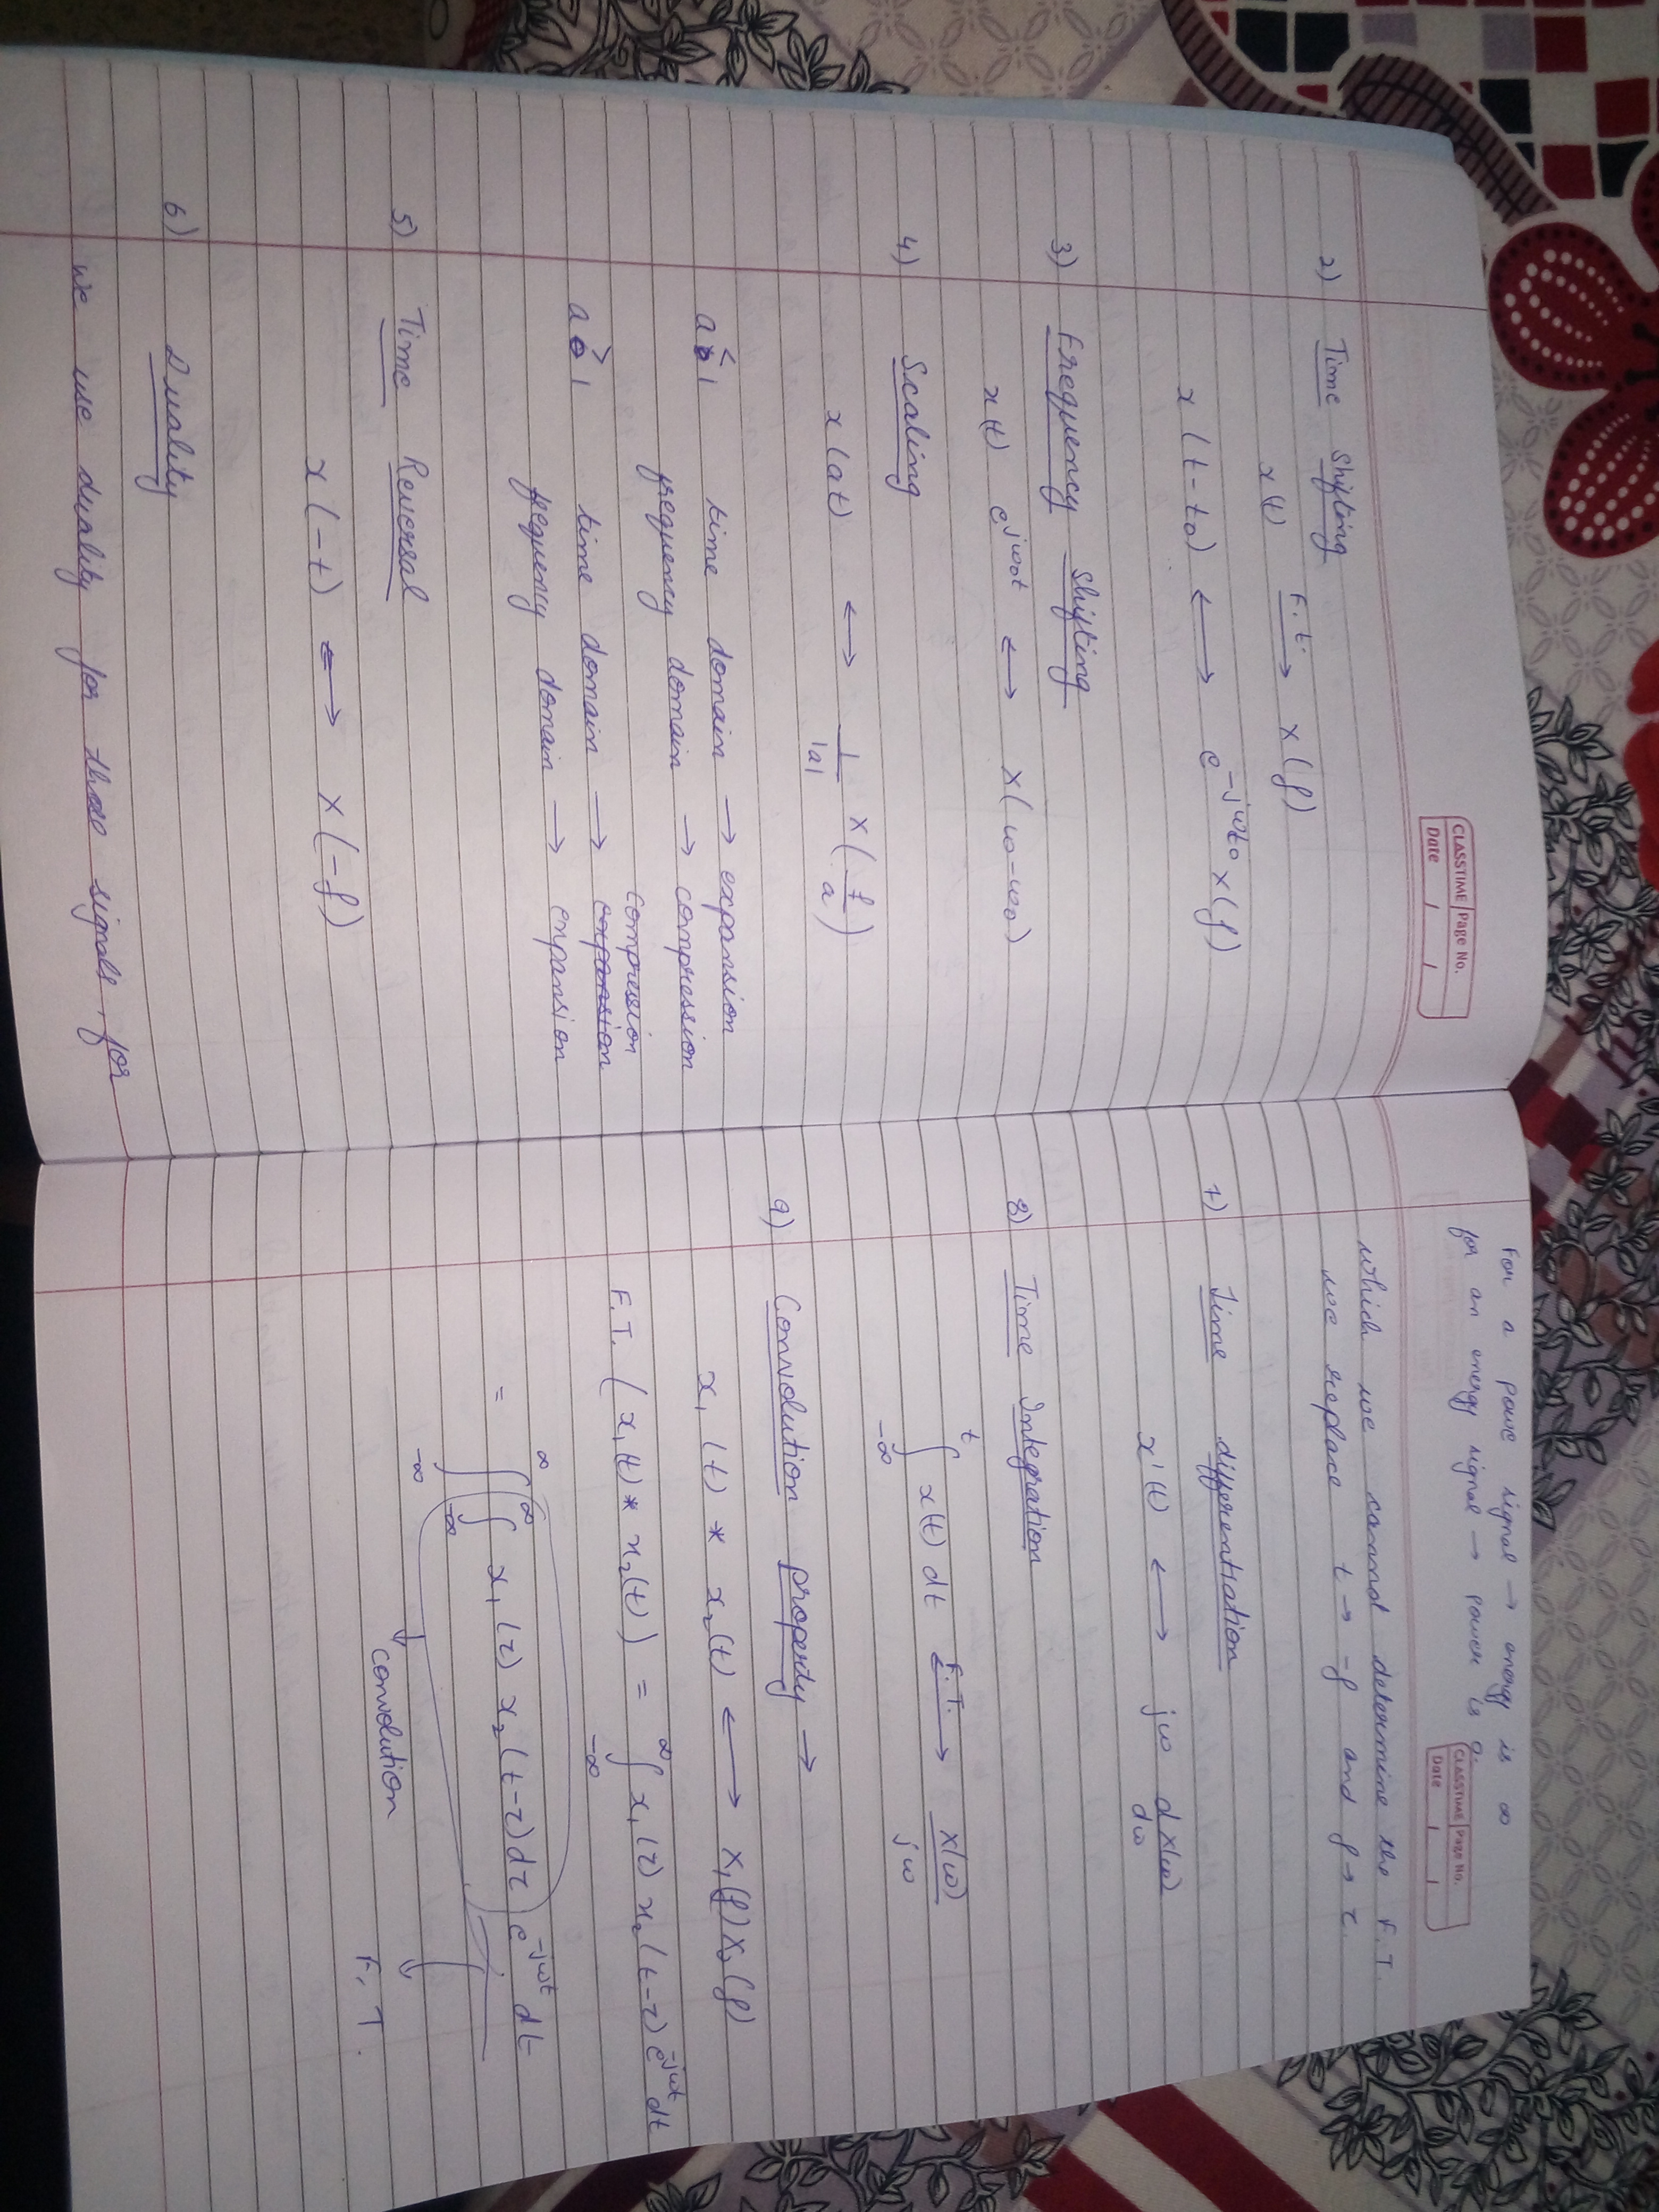 CLASSTIME Page No.
Date / /
2) Time Shifting
x(t) F.t. → X(f)
x(t-t0) ⟷ e^-jωt0 X(f)
3) Frequency Shifting
x(t) e^jω0t ⟷ X(ω-ω0)
4) Scaling
x(at) ⟷ 1/|a| X(f/a)
a < 1 time domain → expansion
frequency domain → compression
compression
a > 1 time domain → expansion
frequency domain → expansion
5) Time Reversal
x(-t) ⟷ X(-f)
6) Duality
we use duality for those signals, for
For a power signal → energy is ∞
for an energy signal → power is 0.
CLASSTIME Page No.
Date / /
which we cannot determine the F.T.
we replace t → -f and f → τ
7) Time differentiation
x'(t) ⟷ jω dX(ω)/dω
8) Time Integration
∫_-∞^t x(t) dt ⟷ F.T. X(ω)/jω
9) Convolution property →
x1(t) * x2(t) ⟷ X1(f) X2(f)
F.T. (x1(t) * x2(t)) = ∫_-∞^∞ x1(τ) x2(t-τ) e^-jωt dt
= ∫_-∞^∞ ∫_-∞^∞ x1(τ) x2(t-τ) dτ e^-jωt dt
Convolution F.T.